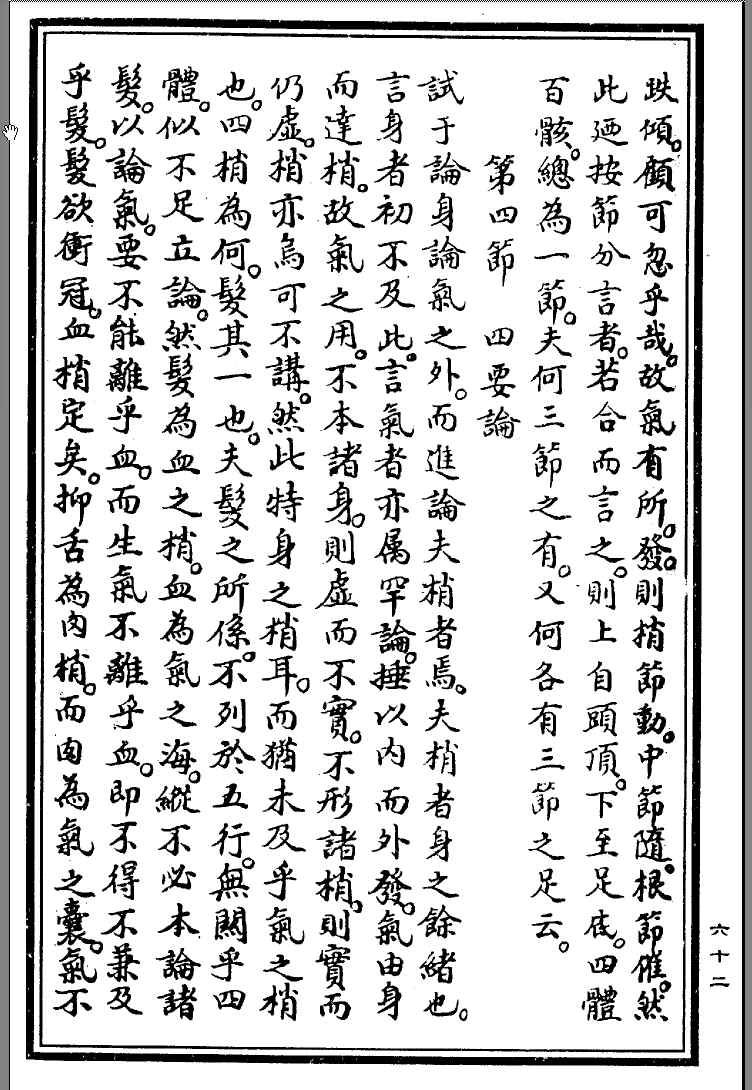 跌傾。顧可忽乎哉。故氣有所。發。則梢節動。中節隨。根節催。然
此廼按節分言者。若合而言之。則上自頭頂。下至足底。四體
百骸。總為一節。夫何三節之有。又何各有三節之足云。
第四節　四要論
試于論身論氣之外。而進論夫梢者焉。夫梢者身之餘緒也。
言身者初不及此。言氣者亦屬罕論。捶以內而外發。氣由身
而達梢。故氣之用。不本諸身。則虛而不實。不形諸梢。則實而
仍虛。梢亦烏可不講。然此特身之梢耳。而猶未及乎氣之梢
也。四梢為何。髮其一也。夫髮之所係。不列於五行。無關乎四
體。似不足立論。然髮為血之梢。血為氣之海。縱不必本論諸
髮。以論氣。要不能離乎血。而生氣不離乎血。即不得不兼及
乎髮。髮欲衝冠。血梢足矣。抑舌為肉梢。而肉為氣之囊。氣不
六十二